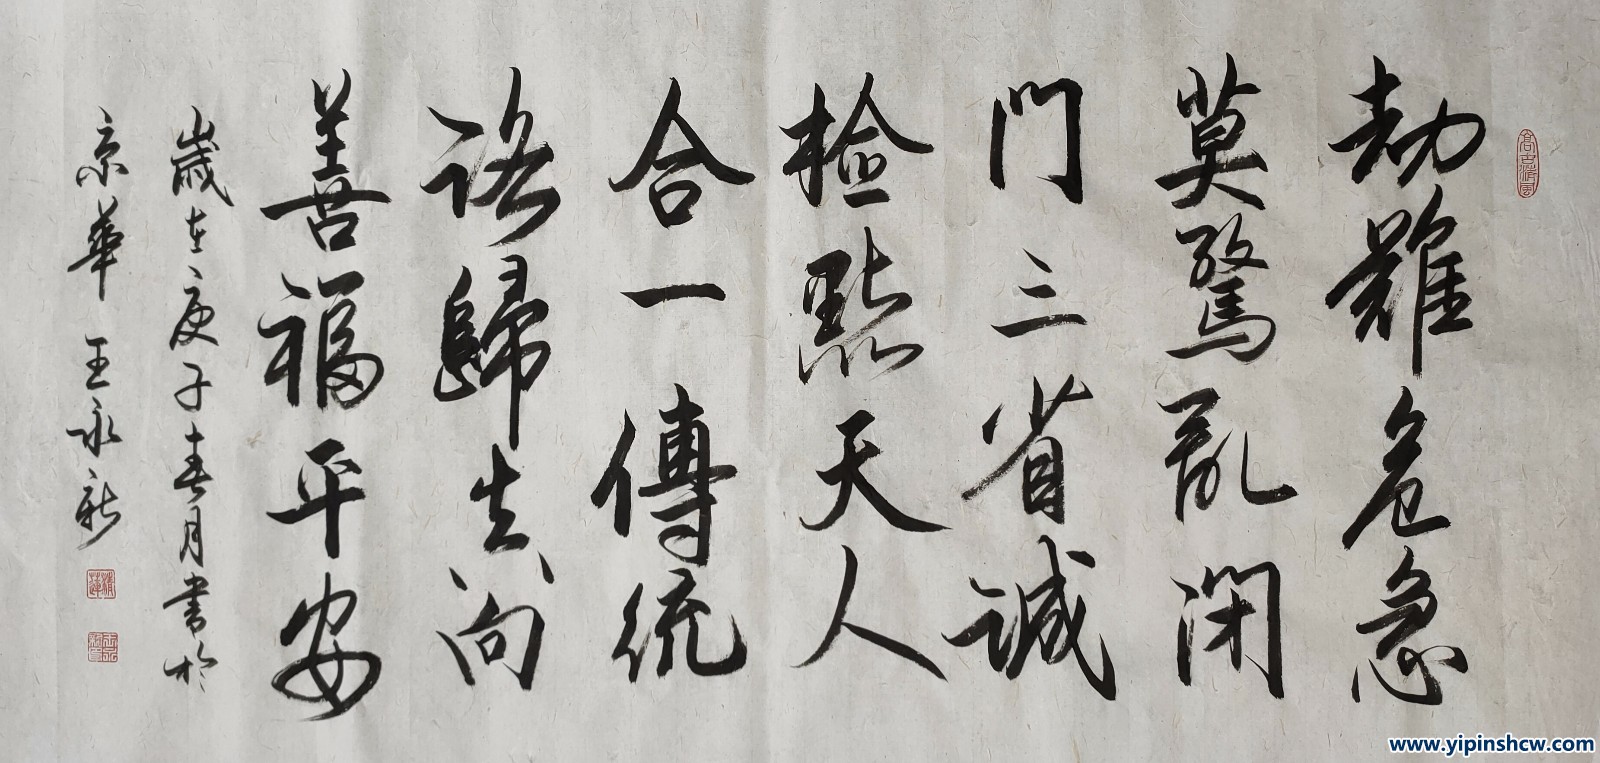 劫難危急
莫驚亂闭
门三省诚
检點天人
合一傳统
路歸真向
善福平安
歲在庚子春月書於
京華 王永新
www.yipinshcw.com